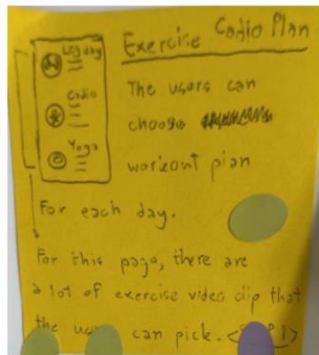 Exercise Cadio Plan
Leg day
Cadio
Yoga
The users can
choose
workout plan
For each day.
For this page, there are
a lot of exercise video clip that
the can pick.